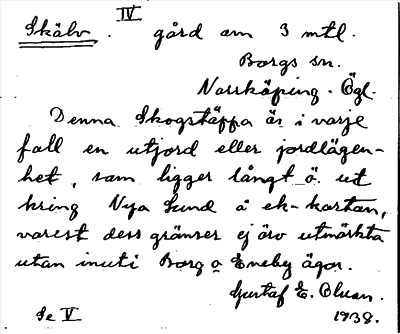 IV
Skälv. gård om 3 mtl.
Borgs sn.
Norrköping. Ögl.
Denna Skogstäppa är i varje
fall en utjord eller jordlägen-
het, som ligger långt ö. ut
kring Nya Sund å ek-kartan,
varest dess gränser ej äro utmärkta
utan inuti Borg o Eneby ägor.
Gustaf E. Olson.
Se V 1938.